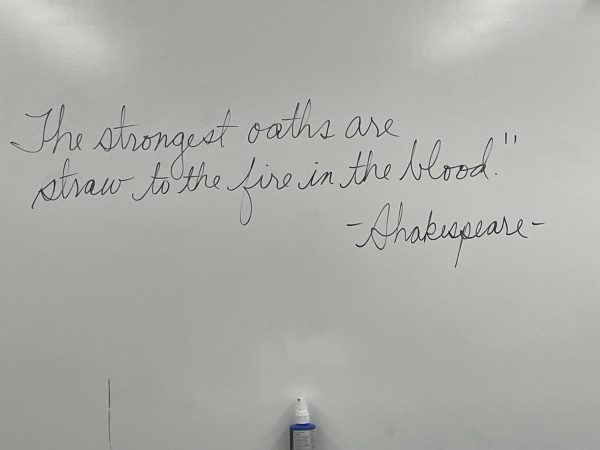 The strongest oaths are
straw to the fire in the blood."
-Shakespeare-